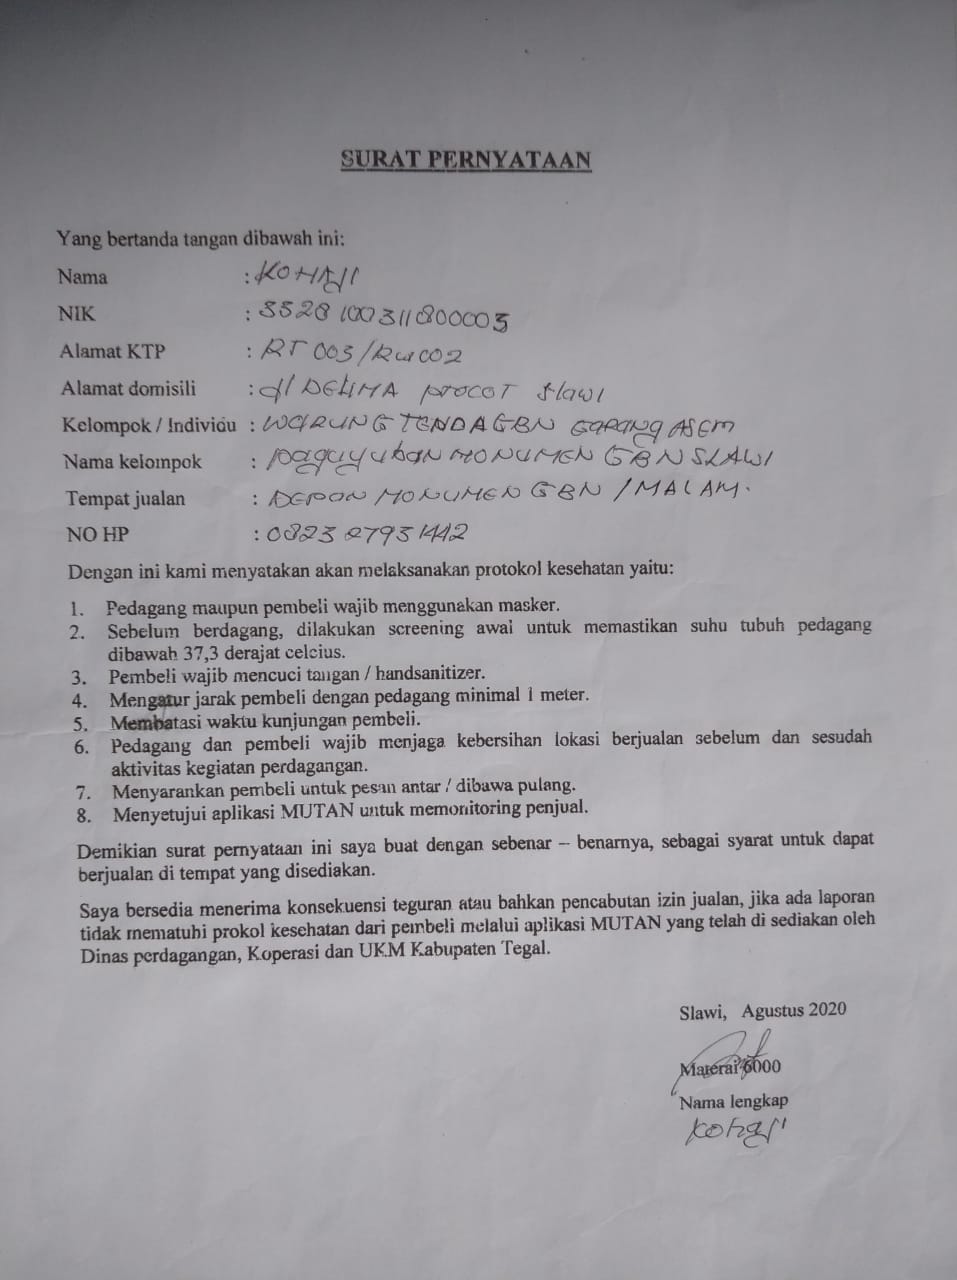 SURAT PERNYATAAN
Yang bertanda tangan dibawah ini:
Nama : KOHAJI
NIK : 3328100311800003
Alamat KTP : RT 003/RW 002
Alamat domisili : Jl DELIMA procot Slawi
Kelompok / Individu : WARUNG TENDA GBN GARANG ASEM
Nama kelompok : paguyuban MONUMEN GBN SLAWI
Tempat jualan : DEPAN MONUMEN GBN / MALAM.
NO HP : 0823 27931442
Dengan ini kami menyatakan akan melaksanakan protokol kesehatan yaitu:
1. Pedagang maupun pembeli wajib menggunakan masker.
2. Sebelum berdagang, dilakukan screening awal untuk memastikan suhu tubuh pedagang
dibawah 37,3 derajat celcius.
3. Pembeli wajib mencuci tangan / handsanitizer.
4. Mengatur jarak pembeli dengan pedagang minimal 1 meter.
5. Membatasi waktu kunjungan pembeli.
6. Pedagang dan pembeli wajib menjaga kebersihan lokasi berjualan sebelum dan sesudah
aktivitas kegiatan perdagangan.
7. Menyarankan pembeli untuk pesan antar / dibawa pulang.
8. Menyetujui aplikasi MUTAN untuk memonitoring penjual.
Demikian surat pernyataan ini saya buat dengan sebenar – benarnya, sebagai syarat untuk dapat
berjualan di tempat yang disediakan.
Saya bersedia menerima konsekuensi teguran atau bahkan pencabutan izin jualan, jika ada laporan
tidak mematuhi prokol kesehatan dari pembeli melalui aplikasi MUTAN yang telah di sediakan oleh
Dinas perdagangan, Koperasi dan UKM Kabupaten Tegal.
Slawi, Agustus 2020
Materai 6000
Nama lengkap
Kohaji